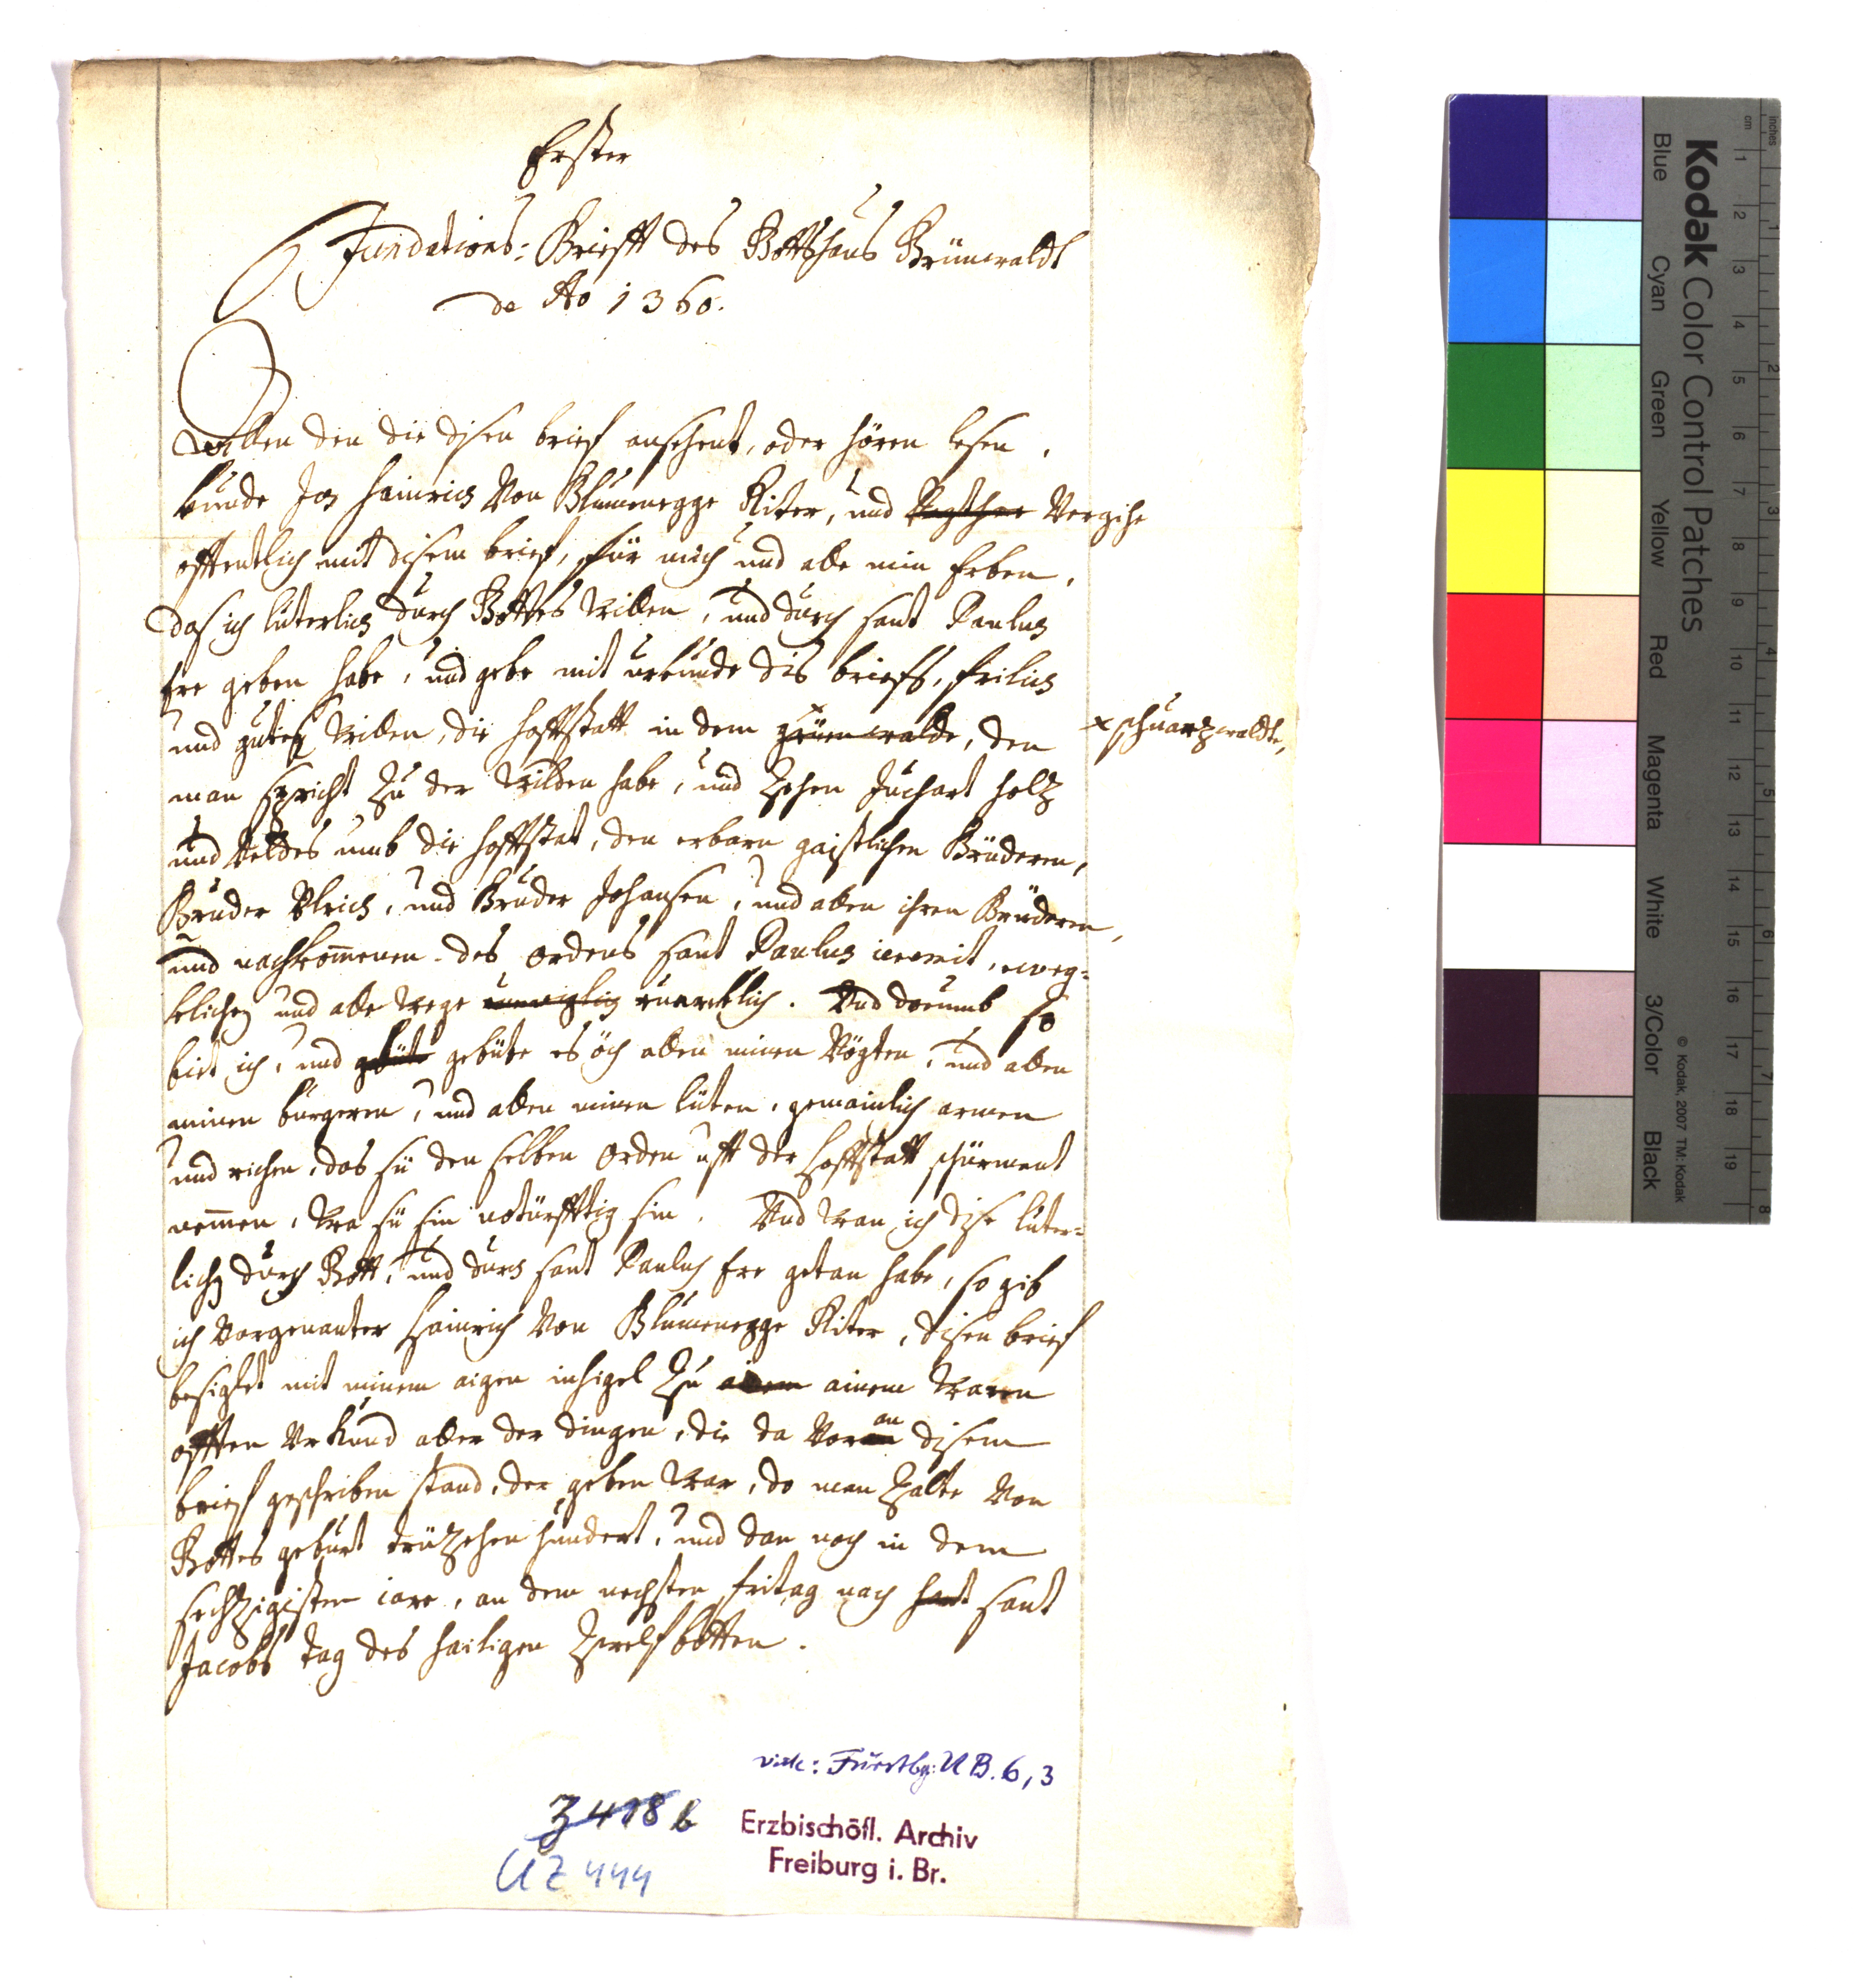 Erster
Fundations: Brieff des Gottshaus Grünwaldt
de Ao 1360.
Allen den die disen brief ansehent, oder hören lesen,
künde Ich Hainrich Von Blumenegge Riter, und Vergihe
offentlich mit disem brief, für mich und alle min Erben,
das ich luterlich durch Gottes willen, und durch sant Paulus
Ere geben habe, und gebe mit urkunde dis briefs, frilich
und gutes willen, die hoffstatt in dem grünenwalde, den
x schwartzwaldte,
man spricht zu der wilden habe, und zehen Juchart holtz
und Veldes umb die hoffstat, den erbarn gaistlichen Brüderen,
Bruder Ulrich, und Bruder Johansen, und allen ihren Brüderen,
und nachkommenen des ordens sant Paulus ieremit, eweg-
klichen und alle wege ruwecklich. Und darumb so
bit ich, und gebüte gebüte es öch allen minen Vögten, und allen
minen burgeren, und allen minen lüten, gemainlich armen
und richen, das sü den selben Orden uff der hoffstatt schirment
nemmen, wa sü sin notürfftig sin. Und wan ich dise luter-
lich durch Gott, und durch sant Paulus Ere getan habe, so gib
ich Vorgenanter Hainrich Von Blumenegge Riter, disen brief
besiglet mit minem aigen insigel zu ainem waren
offten Urkund aller der dingen, die da Vor an disem
brief geschriben stand, der geben war, do man zalte Von
Gottes geburt drüzehen hundert, und dan noch in dem
sechtzigisten iare, an dem nechsten fritag nach sant sant
Jacobs tag des hailigen Zwelfbotten.
vide: Fürstbg: UB. 6, 3
Z 418 b
UZ 444
Erzbischöfl. Archiv
Freiburg i. Br.
Kodak Color Control Patches
Blue Cyan Green Yellow Red Magenta White 3/Color Black
© Kodak, 2007 TM: Kodak
inches 1 2 3 4 5 6 7 8
cm 1 2 3 4 5 6 7 8 9 10 11 12 13 14 15 16 17 18 19